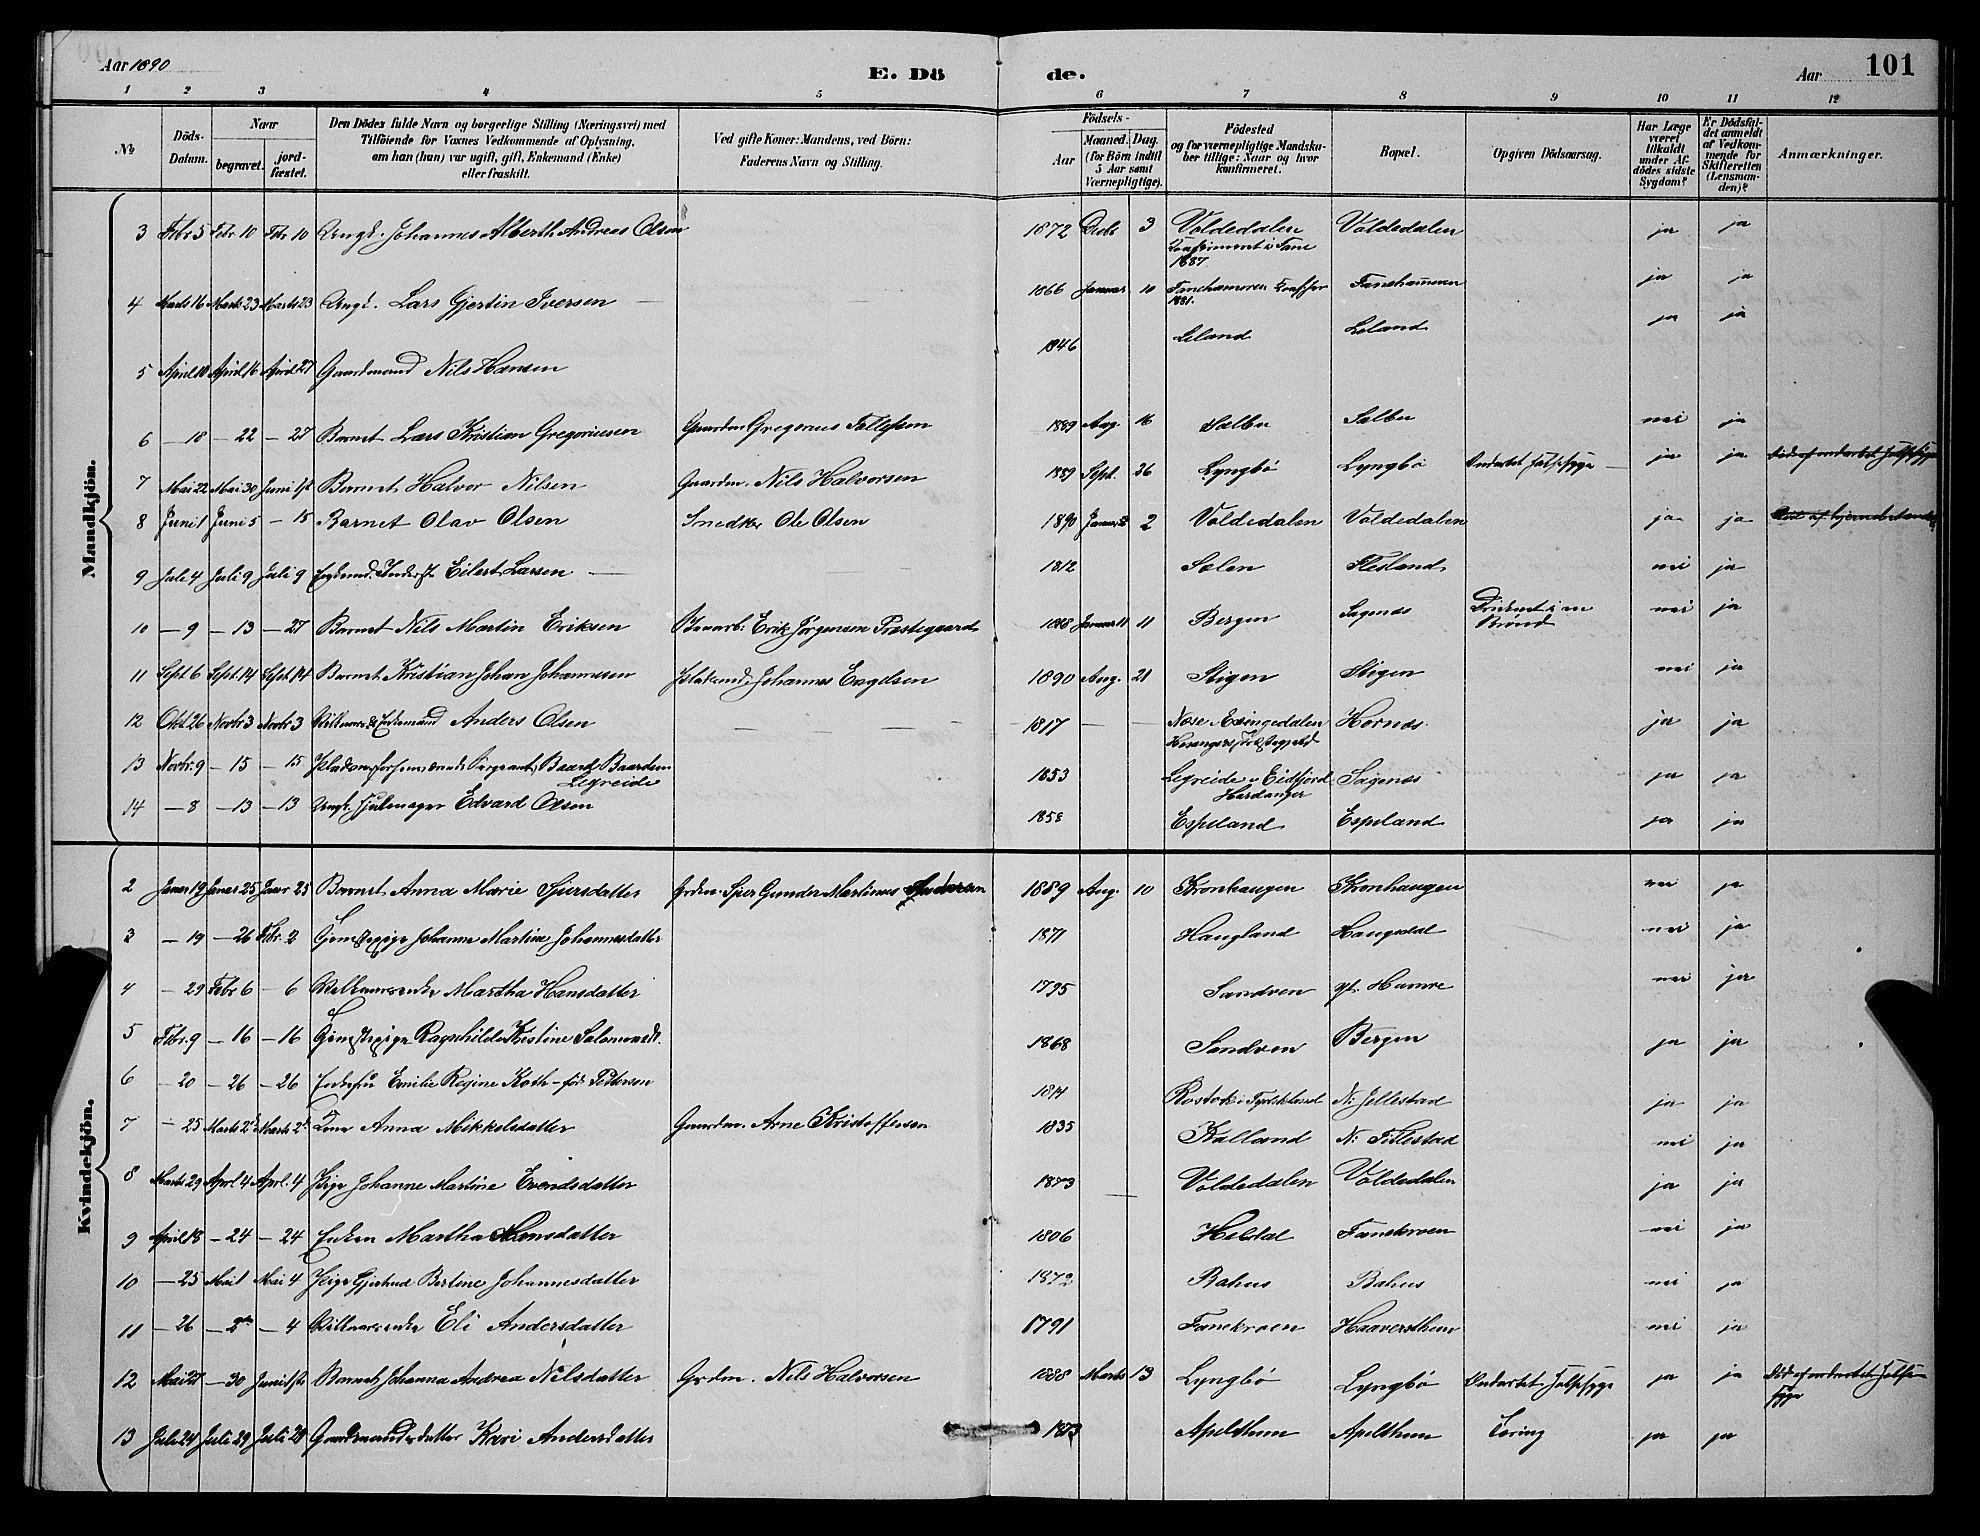 Aar 1890 E. Dö de. Aar 101
1 2 3 4 5 6 7 8 9 10 11 12
No. Döds-Datum. Naar begravet. jordfæstet. Den Dödes fulde Navn og borgerlige Stilling (Næringsvei) med Tilföiende for Voxnes Vedkommende af Oplysning, om han (hun) var ugift, gift, Enkemand (Enke) eller fraskilt. Ved gifte Koner: Mandens, ved Börn: Faderens Navn og Stilling. Födsels- Aar Maaned. Dag. (for Börn indtil 5 Aar samt Værnepligtige). Födested og for værnepligtige Mandskaber tillige: Naar og hvor konfirmeret. Bopæl. Opgiven Dödsaarsag. Har Læge været tilkaldt under Afdödes sidste Sygdom? Er Dödsfaldet anmeldt af Vedkommende for Skifteretten (Lensmanden)? Anmærkninger.
Mandkjön.
3 Febr 5 Febr 10 Febr 10 Ungk. Johannes Alberth Andreas Olsen 1872 Decbr 3 Voldedalen Konfirmeret i Fane 1887 Voldedalen ja ja
4 Marts 16 Marts 23 Marts 23 Ungk. Lars Gjertin Iversen 1866 Januar 10 Fanehammeren Konf. 1881. Fanehammeren ja ja
5 April 10 April 16 April 27 Gaardmand Nils Hansen 1846 Liland Liland ja ja
6 — 18 — 22 — 27 Barnet Lars Kristian Gregoriusen Gaardm Gregorius 1889 Aug. 16 Sælbu Sælbu nei ja
7 Mai 22 Mai 30 Juni 1st Barnet Halvor Nilsen Gaardm. Nils Halvorsen 1889 Sept. 26 Lyngbö Lyngbö Ondartet Halssyge ja ja Död af ondartet Halssyge
8 Juni 1 Juni 5 — 15 Barnet Olav Olsen Snedker Ole Olsen 1890 Januar 2 Voldedalen Voldedalen ja ja
9 Juli 4 Juli 9 Juli 9 Inderst Eilert Larsen 1812 Solen Flesland nei ja
10 — 9 — 13 — 27 Barnet Nils Martin Eriksen Erik Jörgensen Prestegaard 1888 Januar 11 11 Bergen Sagenes Druknet i en Brönd nei ja
11 Sept 6 Sept 14 Sept 14 Barnet Kristian Johan Johannesen Pladsmd. Johannes Engelsen 1890 Aug. 21 Stigen Stigen nei ja
12 Okt. 26 Novbr 3 Novbr 3 Enkemand Anders Olsen 1817 Nose i Exingedalen Hosangers Hornæs ja ja
13 Novbr. 9 — 15 — 15 Baard Baardsen Legreide 1853 Legreide i Eidfjord Hardanger Sagenæs ja ja
14 — 8 — 13 — 13 Ungk. Hjulmager Edvard Olsen 1858 Espeland Espeland ja ja
Kvindekjön.
2 Januar 19 Januar 25 Januar 25 Barnet Anna Marie Sjursdatter Grdm. Sjur Gunder Martinus Andersen 1889 Aug. 10 Kronhaugen Kronhaugen nei ja
3 — 19 — 26 Febr. 2 Tjenestepige Johanne Martine Johannesdatter 1871 Haugland Haugsdal nei ja
4 — 29 Febr 6 — 6 Martha Hansdatter 1795 Sandven Hamre nei ja
5 Febr. 9 — 16 — 16 Tjenestepige Ragnhilde Kistine Salomonsdt. 1868 Sandven Bergen ja ja
6 — 20 — 26 — 26 Emilie Regine Koth — föd Pettersen 1814 Rostok i Tydskland N. Jellestad ja ja
7 — 25 Marts 2 Marts 2 Kone Anna Mikkelsdatter Gaardm. Arne Kristoffersen 1835 Kalland N. Titlestad nei ja
8 Marts 29 Aprl 4 Aprl. 4 Pige Johanne Martine Evendsdatter 1873 Voldedalen Voldedalen ja ja
9 April 18 — 24 — 24 Enken Martha Hansdatter 1806 Hildal Fanekroen nei ja
10 — 25 Mai 1 Mai 4 Pige Gjertrud Bertine Johannesdatter 1872 Rahus Rahus nei ja
11 — 26 — 2 — 4 Eli Andersdatter 1791 Fanekroen Haaversthun nei ja
12 Mai 27 — 30 Juni 1ste Barnet Johanna Andrea Nilsdatter Grdm. Nils Halvorsen 1888 Marts 13 Lyngbö Lyngbö Ondartet Halssyge ja ja Död af ondartet Halssyge
13 Juli 24 Juli 29 Juli 29 Gaardmandsdatter Kari Andersdatter 1873 Apelthun Apelthun Tæring ja ja